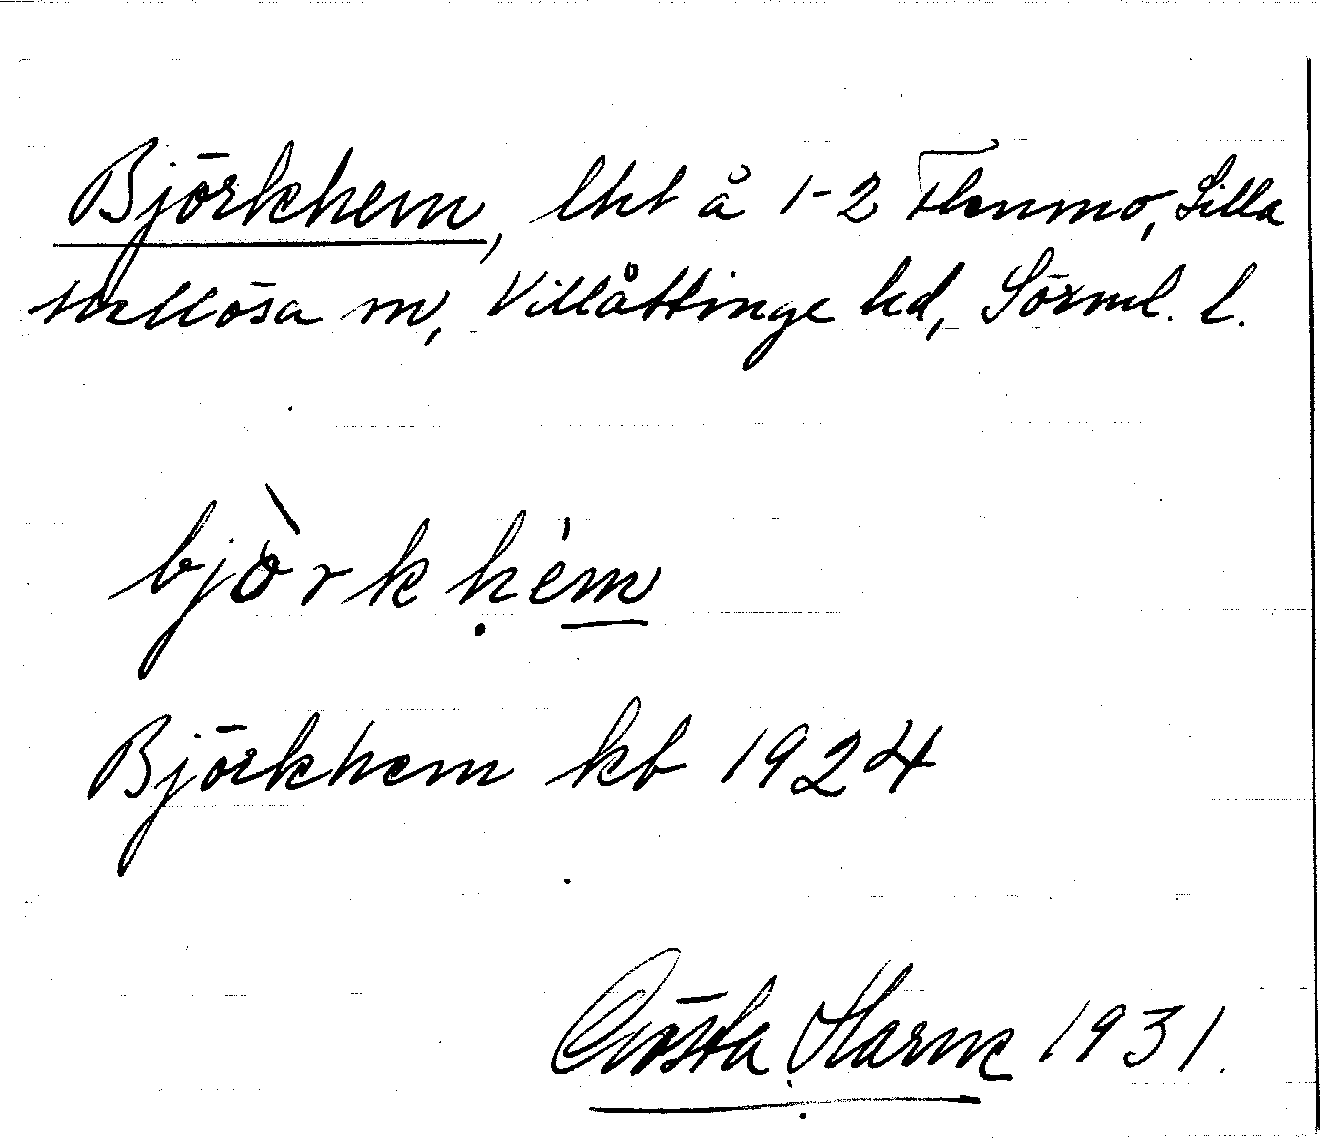 Björkhem, lht å 1-2 Flenmo, Lilla
Mellösa sn, Villåttinge hd, Sörml. l.
bjòrkhém
Björkhem kb 1924
Gösta Harne 1931.